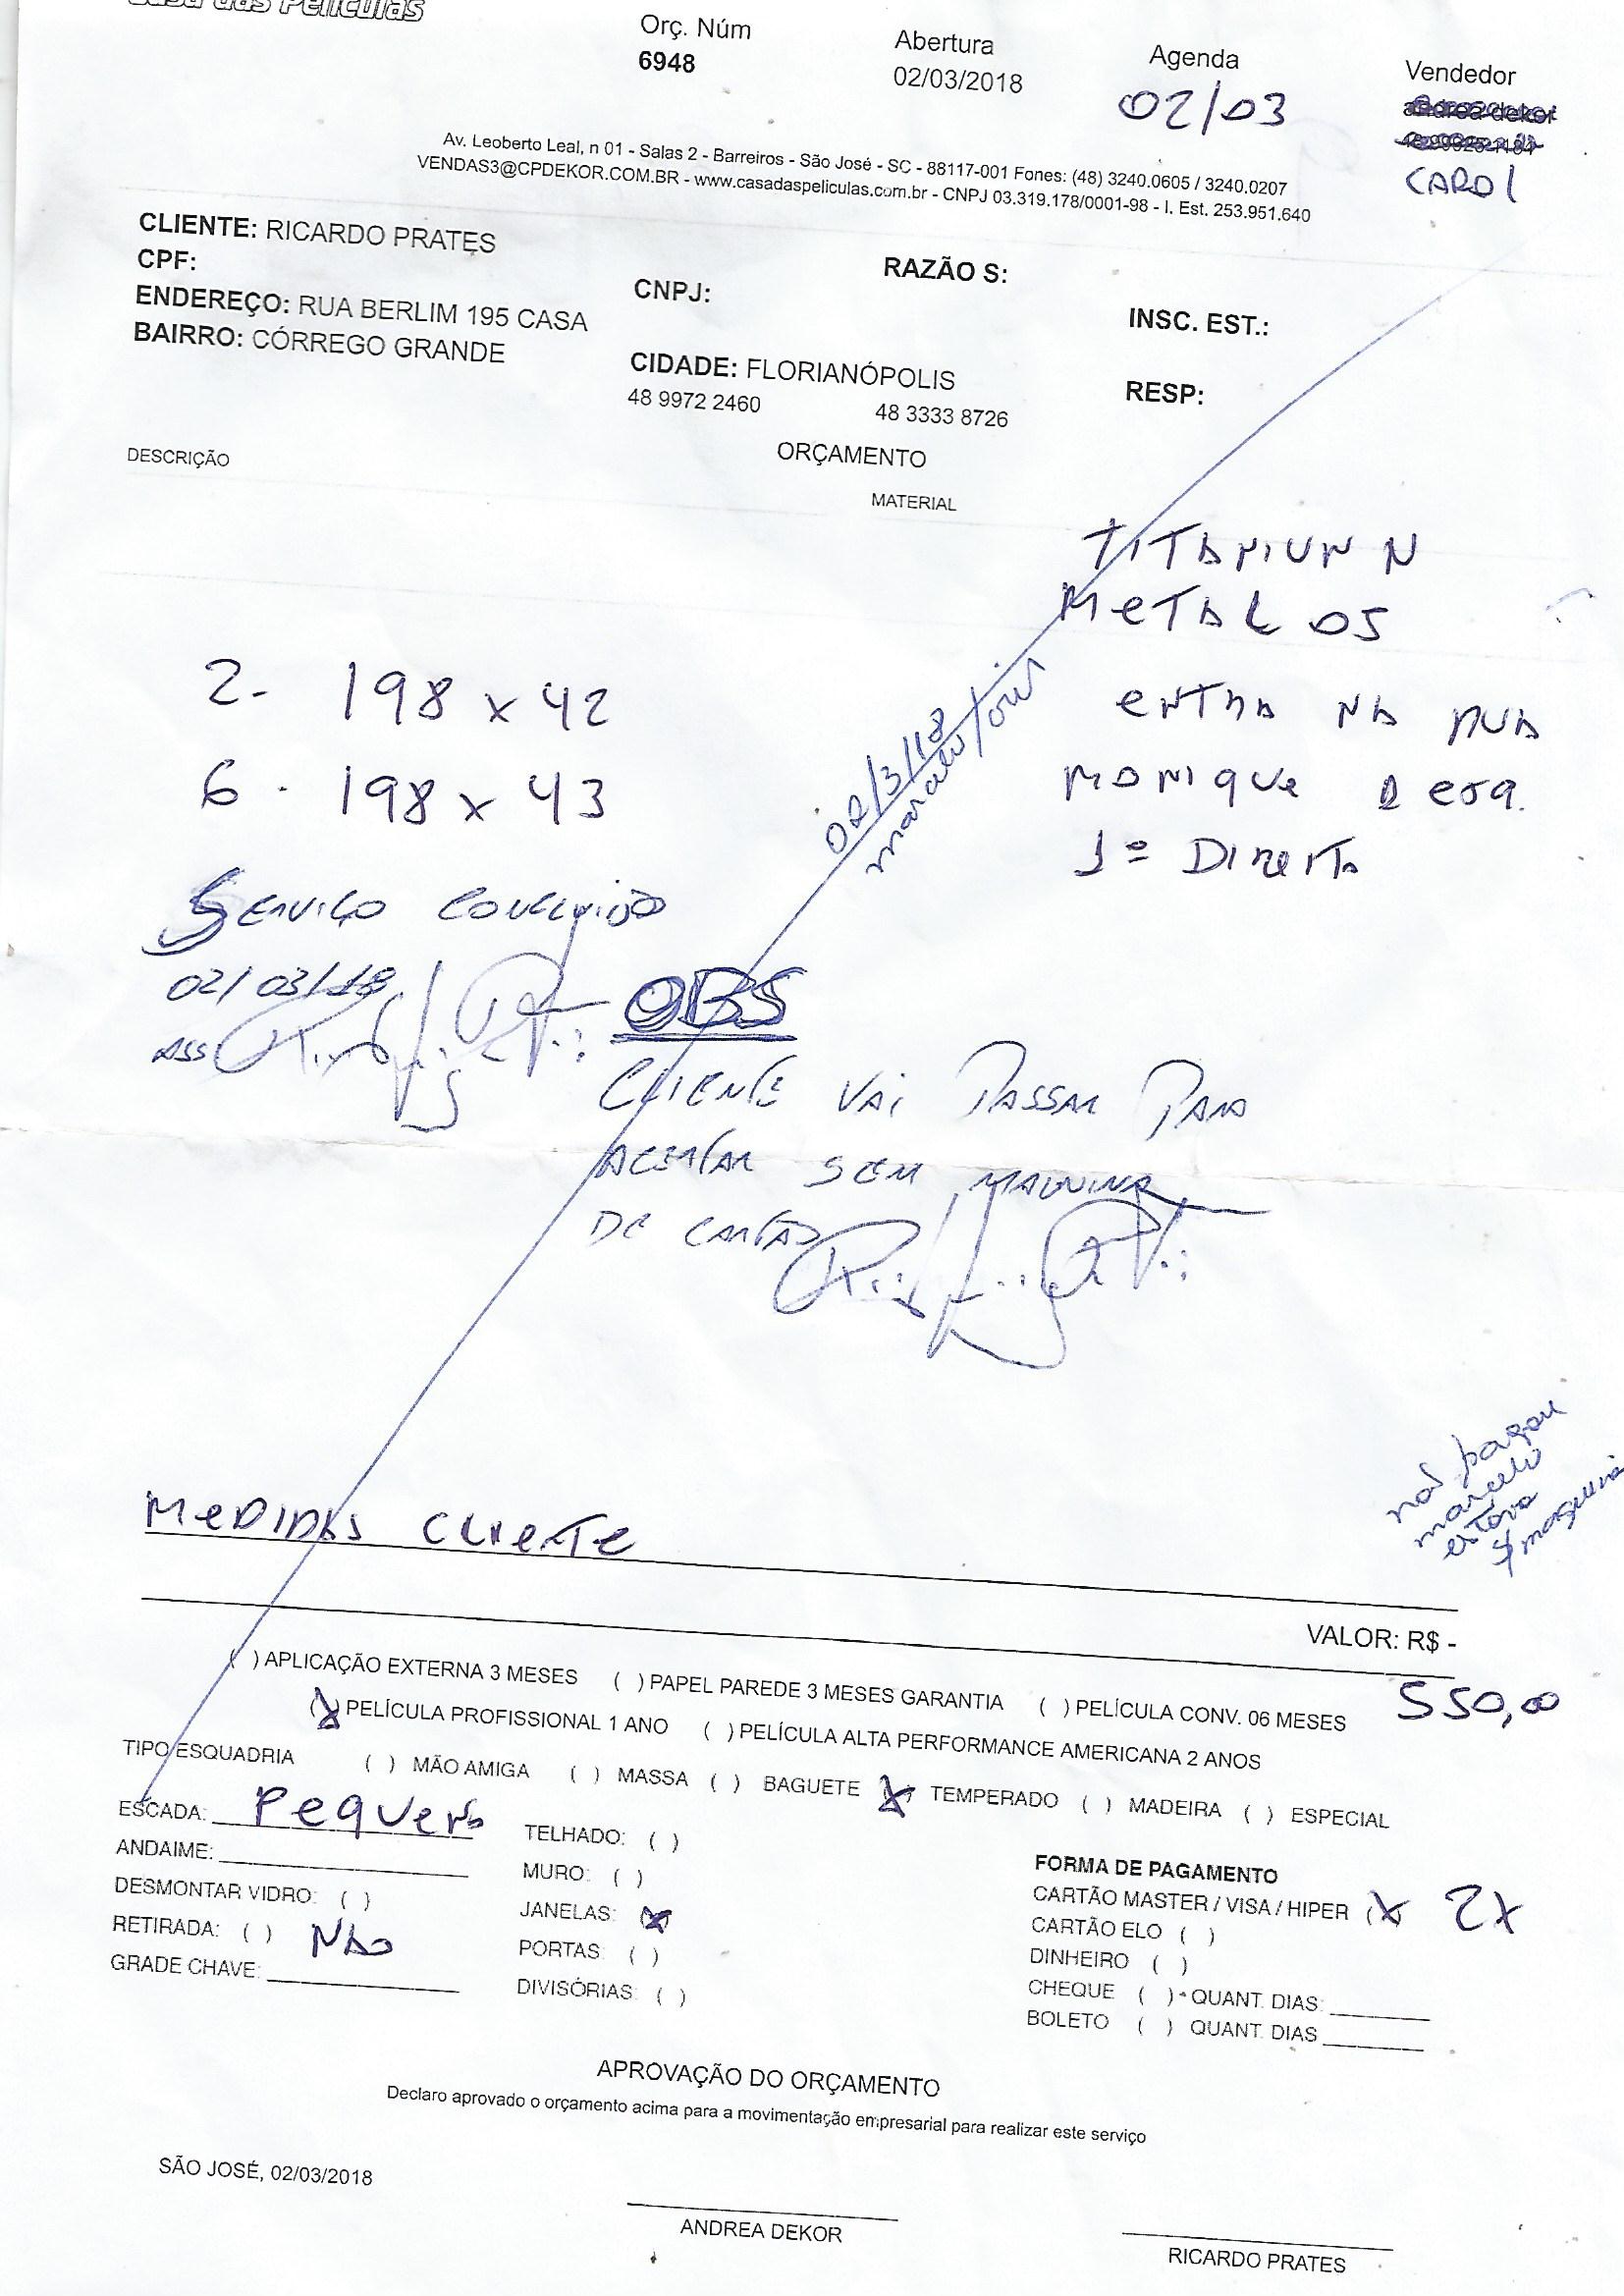 Casa das Películas
Orç. Núm
6948
Abertura
02/03/2018
Agenda
02/03
Vendedor
andrea dekor
CAROL
Av. Leoberto Leal, n 01 - Salas 2 - Barreiros - São José - SC - 88117-001 Fones: (48) 3240.0605 / 3240.0207
VENDAS3@CPDEKOR.COM.BR - www.casadaspeliculas.com.br - CNPJ 03.319.178/0001-98 - I. Est. 253.951.640
CLIENTE: RICARDO PRATES
CPF:
CNPJ:
RAZÃO S:
INSC. EST.:
ENDEREÇO: RUA BERLIM 195 CASA
BAIRRO: CÓRREGO GRANDE
CIDADE: FLORIANÓPOLIS
RESP:
48 9972 2460 48 3333 8726
ORÇAMENTO
DESCRIÇÃO
MATERIAL
TITANIUM N
METAL 05
2- 198 x 42
6 - 198 x 43
02/3/18
marcelo/
ENTRA NA RUA
MONIQUE A ESQ.
1ª DIREITA
SERVIÇO CONCLUIDO
02/03/18
ASS
OBS
CLIENTE VAI PASSAR PARA
ACERTAR SEM MAQUINA
DE CARTAO
não pagou
marcelo
estava
s/ maquina
MEDIDAS CLIENTE
VALOR: R$ -
550,00
( ) APLICAÇÃO EXTERNA 3 MESES ( ) PAPEL PAREDE 3 MESES GARANTIA ( ) PELÍCULA CONV. 06 MESES
(X) PELÍCULA PROFISSIONAL 1 ANO ( ) PELÍCULA ALTA PERFORMANCE AMERICANA 2 ANOS
TIPO ESQUADRIA ( ) MÃO AMIGA ( ) MASSA ( ) BAGUETE (X) TEMPERADO ( ) MADEIRA ( ) ESPECIAL
ESCADA: PEQUENA
ANDAIME:
DESMONTAR VIDRO: ( )
RETIRADA: ( ) NÃO
GRADE CHAVE:
TELHADO: ( )
MURO: ( )
JANELAS: (X)
PORTAS: ( )
DIVISÓRIAS: ( )
FORMA DE PAGAMENTO
CARTÃO MASTER / VISA / HIPER (X) 2X
CARTÃO ELO ( )
DINHEIRO ( )
CHEQUE ( ) - QUANT. DIAS:
BOLETO ( ) QUANT. DIAS
APROVAÇÃO DO ORÇAMENTO
Declaro aprovado o orçamento acima para a movimentação empresarial para realizar este serviço
SÃO JOSÉ, 02/03/2018
ANDREA DEKOR
RICARDO PRATES